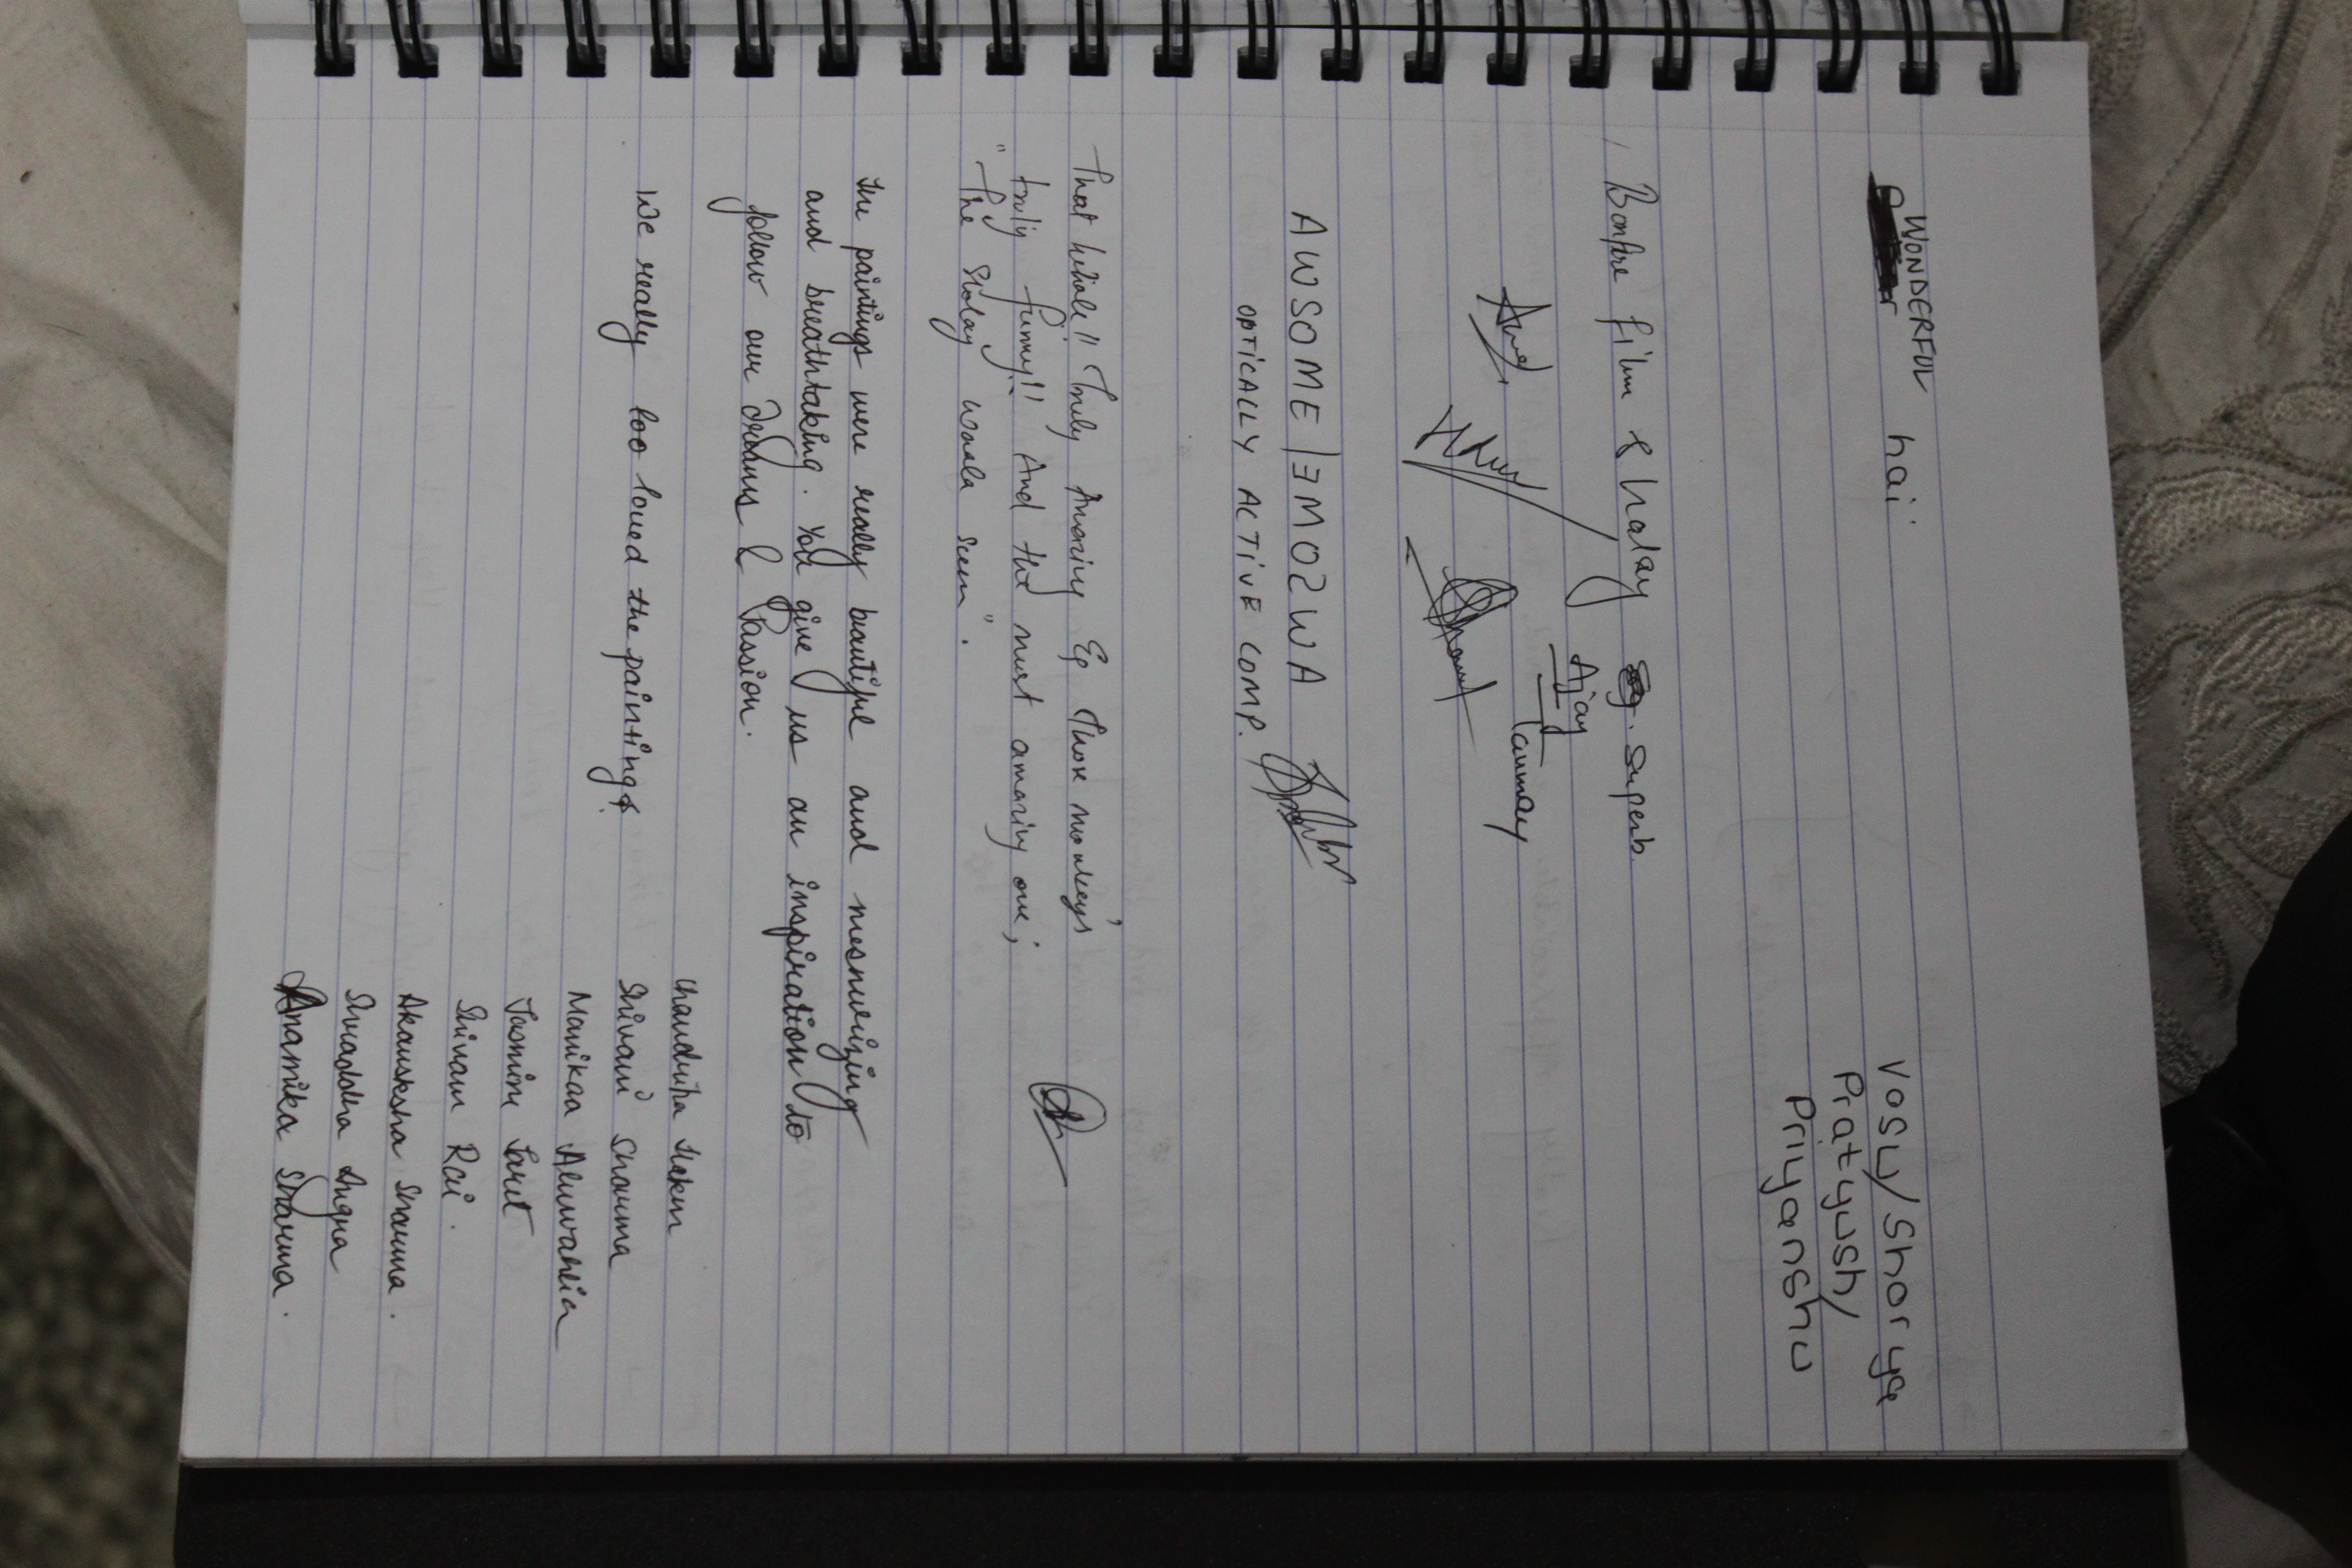 WONDERFUL hai
Vosu/Shorya
Pratyush/
Priyanshu
Bonfire film & halay superb.
Ajay
Tanmay
AWSOME|ƎMOƧWA
OPTICALLY ACTIVE COMP.
That whole!! Truly Amazing Eg Those monkey's
truly funny!! And the must amazing one;
" The Sholay Waala Scene".
The paintings were really beautiful and mesmerizing
and breathtaking. You give us an inspiration to
follow our Dreams & Passion.
We really too loved the paintings.
Shivani Sharma
Manikaa Ahluwahlia
Jasmine
Shivani Rai.
Akansksha Sharma.
Shraddha
Anamika Sharma.